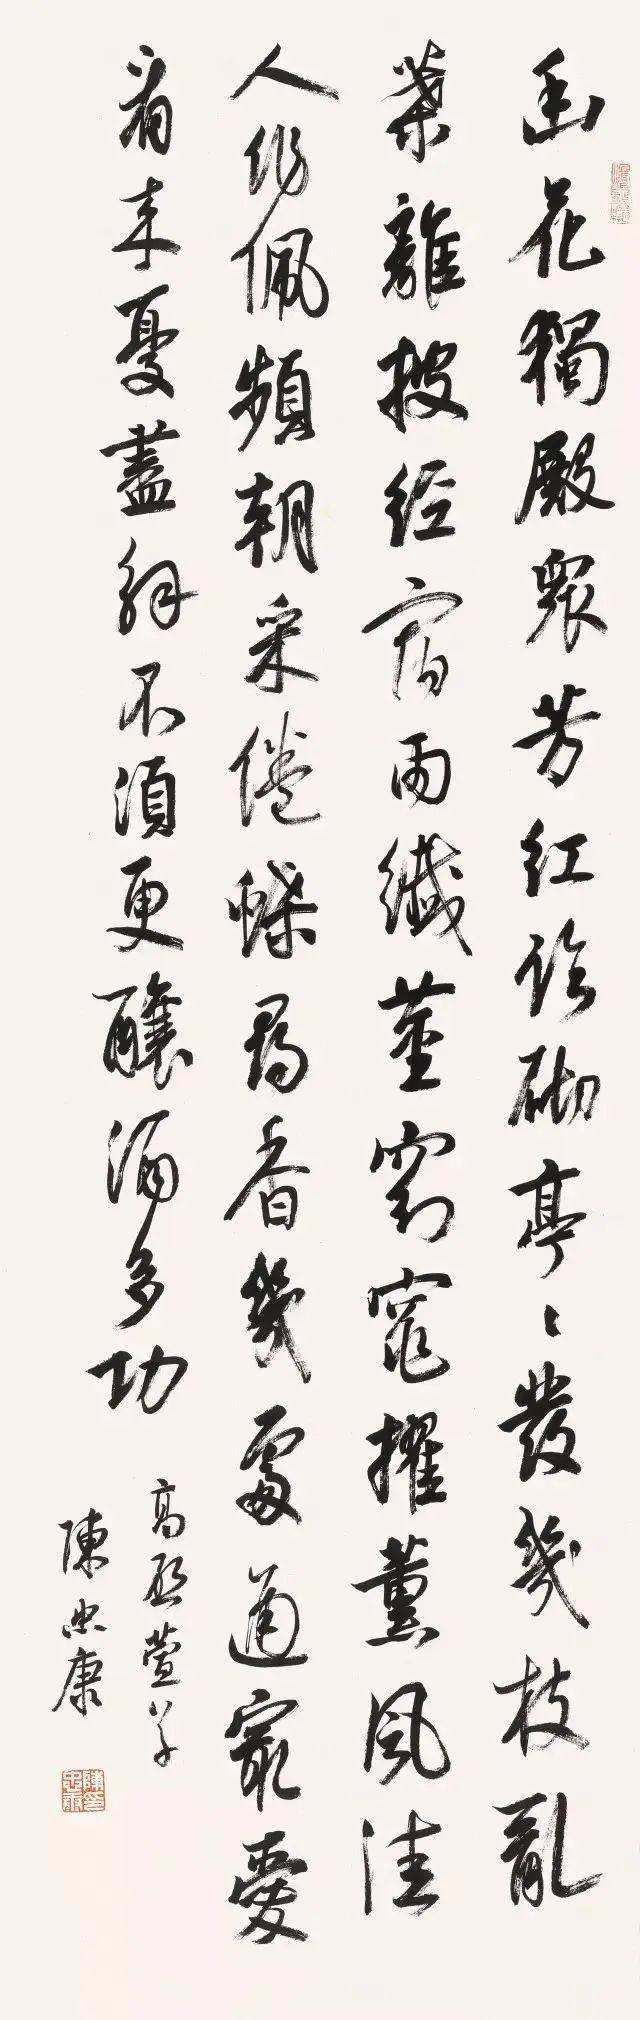 幽花獨殿衆芳紅臨砌亭〻發幾枝亂
葉離披經宿雨纖莖窈窕擢薰風佳
人紉佩頻朝采倦蝶尋香幾處通最愛
看來憂盡解不須更釀酒多功
高啟萱草
陳忠康